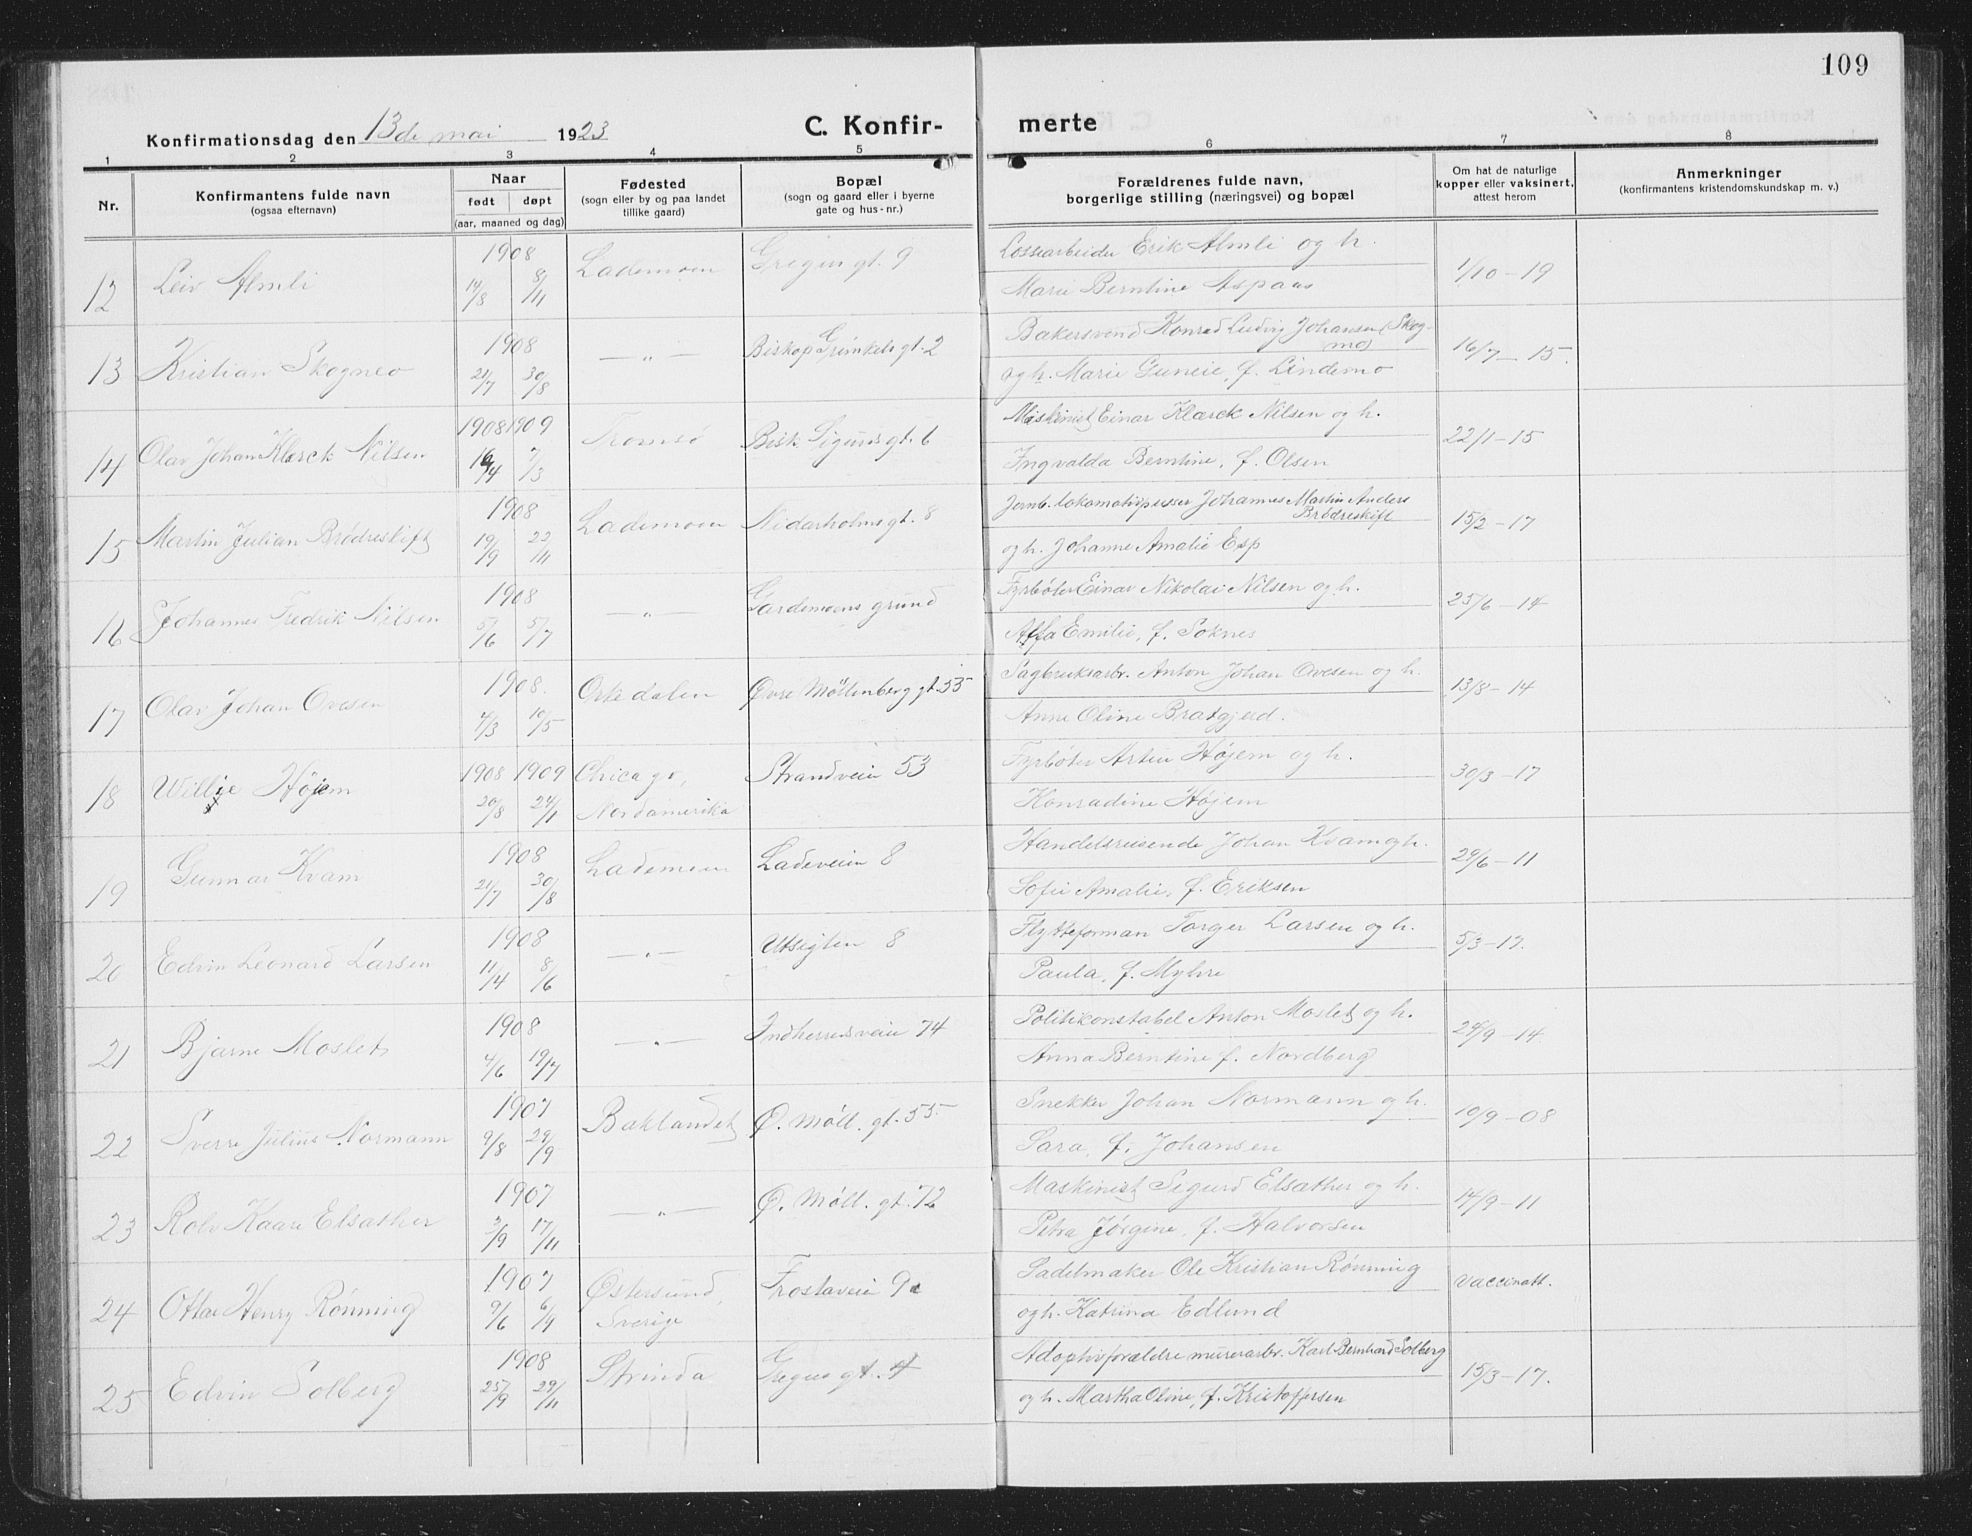 109
Konfirmationsdag den 13de mai 1923 C. Konfir- merte
1 2 3 4 5 6 7 8
Nr.
Konfirmantens fulde navn
(ogsaa efternavn)
Naar
født døpt
(aar, maaned og dag)
Fødested
(sogn eller by og paa landet
tillike gaard)
Bopæl
(sogn og gaard eller i byerne
gate og hus-nr.)
Forældrenes fulde navn,
borgerlige stilling (næringsvei) og bopæl
Om hat de naturlige
kopper eller vaksinert,
attest herom
Anmerkninger
(konfirmantens kristendomskundskap m. v.)
12 Leiv Almli 1908 14/8 8/11 Lademoen gt. 9 Lossearbeider Erik Almli og h. 1/10-19
Marie Berntine Aspaas
13 Kristian Skogmo 1908 21/7 30/8 —„— Biskop Grimkels gt. 2 Bakersvend Konrad Ludvig Johansen (Skog-
mo) 16/7-15.
og h. Marie f. Lindemo
14 Olav Johan Klærck Nilsen 1908 1909 16/4 7/3 Tromsø Bisk Sigurds gt. 6 Maskinist Einar Klærck Nilsen og h. 22/1-15
Ingvalda Berntine, f. Olsen
15 Martin Julian Brødreskift 1908 19/9 22/11 Lademoen Nidarholms gt. 8 Jernb. lokomotivpusser Johannes Martin Anders
Brødreskift 15/2-17
og h. Johanne Amalie Esp
16 Johannes Fredrik Nilsen 1908 5/6 5/7 —„— Gardemoens grund Fyrbøter Einar Nikolai Nilsen og h. 25/6-14
Alfa Emilie, f. Soknes
17 Olav Johan Ovesen 1908. 4/3 10/5 Orkedalen Øvre Møllenberg gt. 55 Sagbruksarbr. Anton Johan Ovesen og h. 13/8-14
Anne Oline Bratgjerd.
18 Willie Højem 1908 1909 20/8 24/1 Chicago, Strandveien 53 Fyrbøter Højem og h. 30/3-17
Nordamerika Konradine Højem
19 Gunnar Kvam 1908 21/7 30/8 Lademoen Ladeveien 8 Handelsreisende Johan Kvam og h. 29/6-11
Sofie Amalie, f. Eriksen
20 Edvin Leonard Larsen 1908 11/4 8/6 —„— Utsigten 8 Flytteforman Torger Larsen og h. 5/3-17.
Paula, f. Myhre
21 Bjarne Moslet 1908 4/6 19/7 —„— Indherredsveien 74 Politikonstabel Anton Moslet og h. 24/9-14.
Anna Berntine f. Nordberg
22 Sverre Julius Normann 1907 9/8 29/9 Baklandet Ø. Møll. gt. 55 Snekker Johan Normann og h. 10/9-08
Sara, f. Johansen
23 Rolv Kaare Elsæther 1907 3/9 17/11 —„— Ø. Møll. gt. 72 Maskinist Sigurd Elsæther og h. 14/9-11
Petra Jørgine, f. Halvorsen
24 Ottar Henry Rønning 1907 9/6 Østersund, Frostaveien Sadelmaker Ole Kristian Rønning vaccinatt.
Sverige og h. Katrina Edlund
25 Edvin Solberg 1908 25/9 29/11 Strinda gt. 4 Adoptivforældre murerarbr. Karl Bernhard Solberg 15/3-17.
og h. Martha Oline, f. Kristoffersen